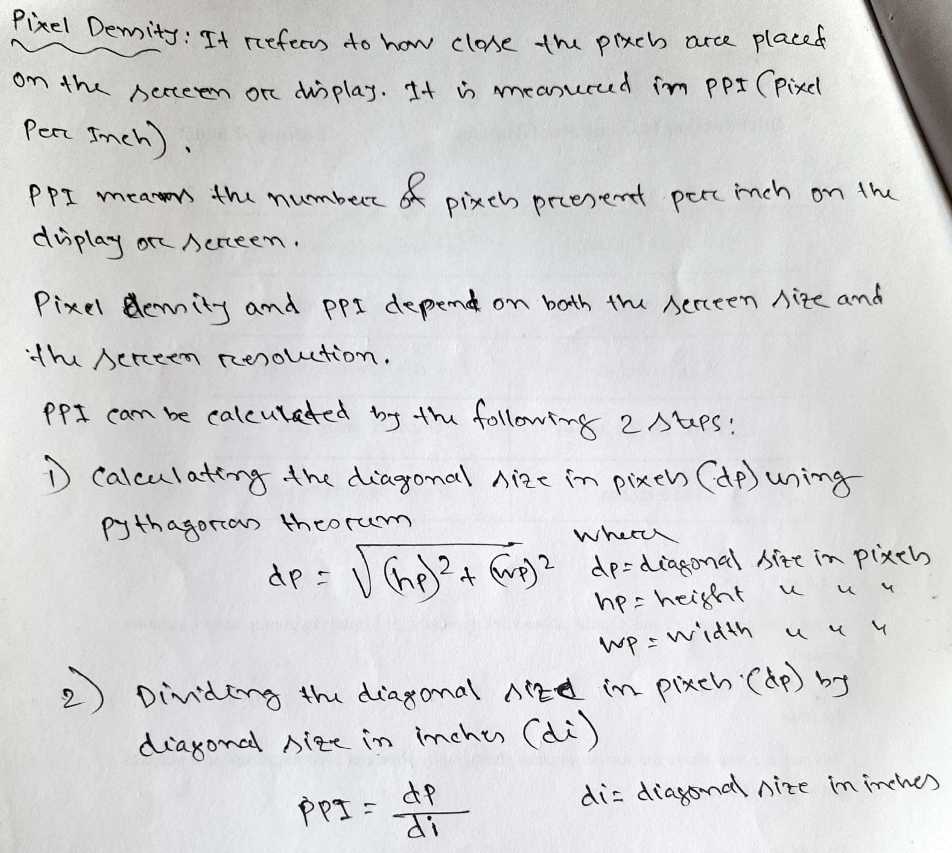 Pixel Density: It refers to how close the pixels are placed
on the screen or display. It is measured in PPI (Pixel
Per Inch).
PPI means the number of pixels present per inch on the
display or screen.
Pixel density and PPI depend on both the screen size and
the screen resolution.
PPI can be calculated by the following 2 steps:
1) Calculating the diagonal size in pixels (dp) using
pythagoras theorem
where
dp = √(hp)² + (wp)² dp = diagonal size in pixels
hp = height " " "
wp = width " " "
2) Dividing the diagonal size in pixels (dp) by
diagonal size in inches (di)
PPI = dp/di di = diagonal size in inches